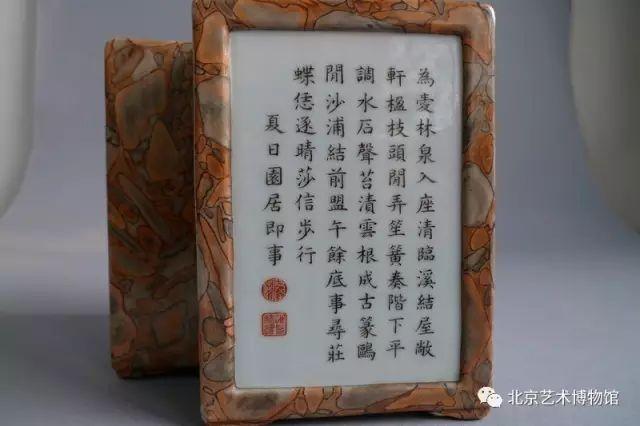 為愛林泉入座清臨溪結屋敞
軒楹枝頭閒弄笙簧奏階下平
調水石聲苔漬雲根成古篆鷗
閒沙浦結前盟午餘底事尋莊
蝶恁逐晴莎信步行
夏日園居即事
北京艺术博物馆